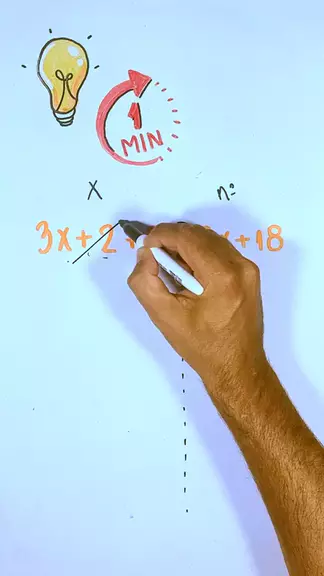 1
MIN
x nº
3x+2 x+18